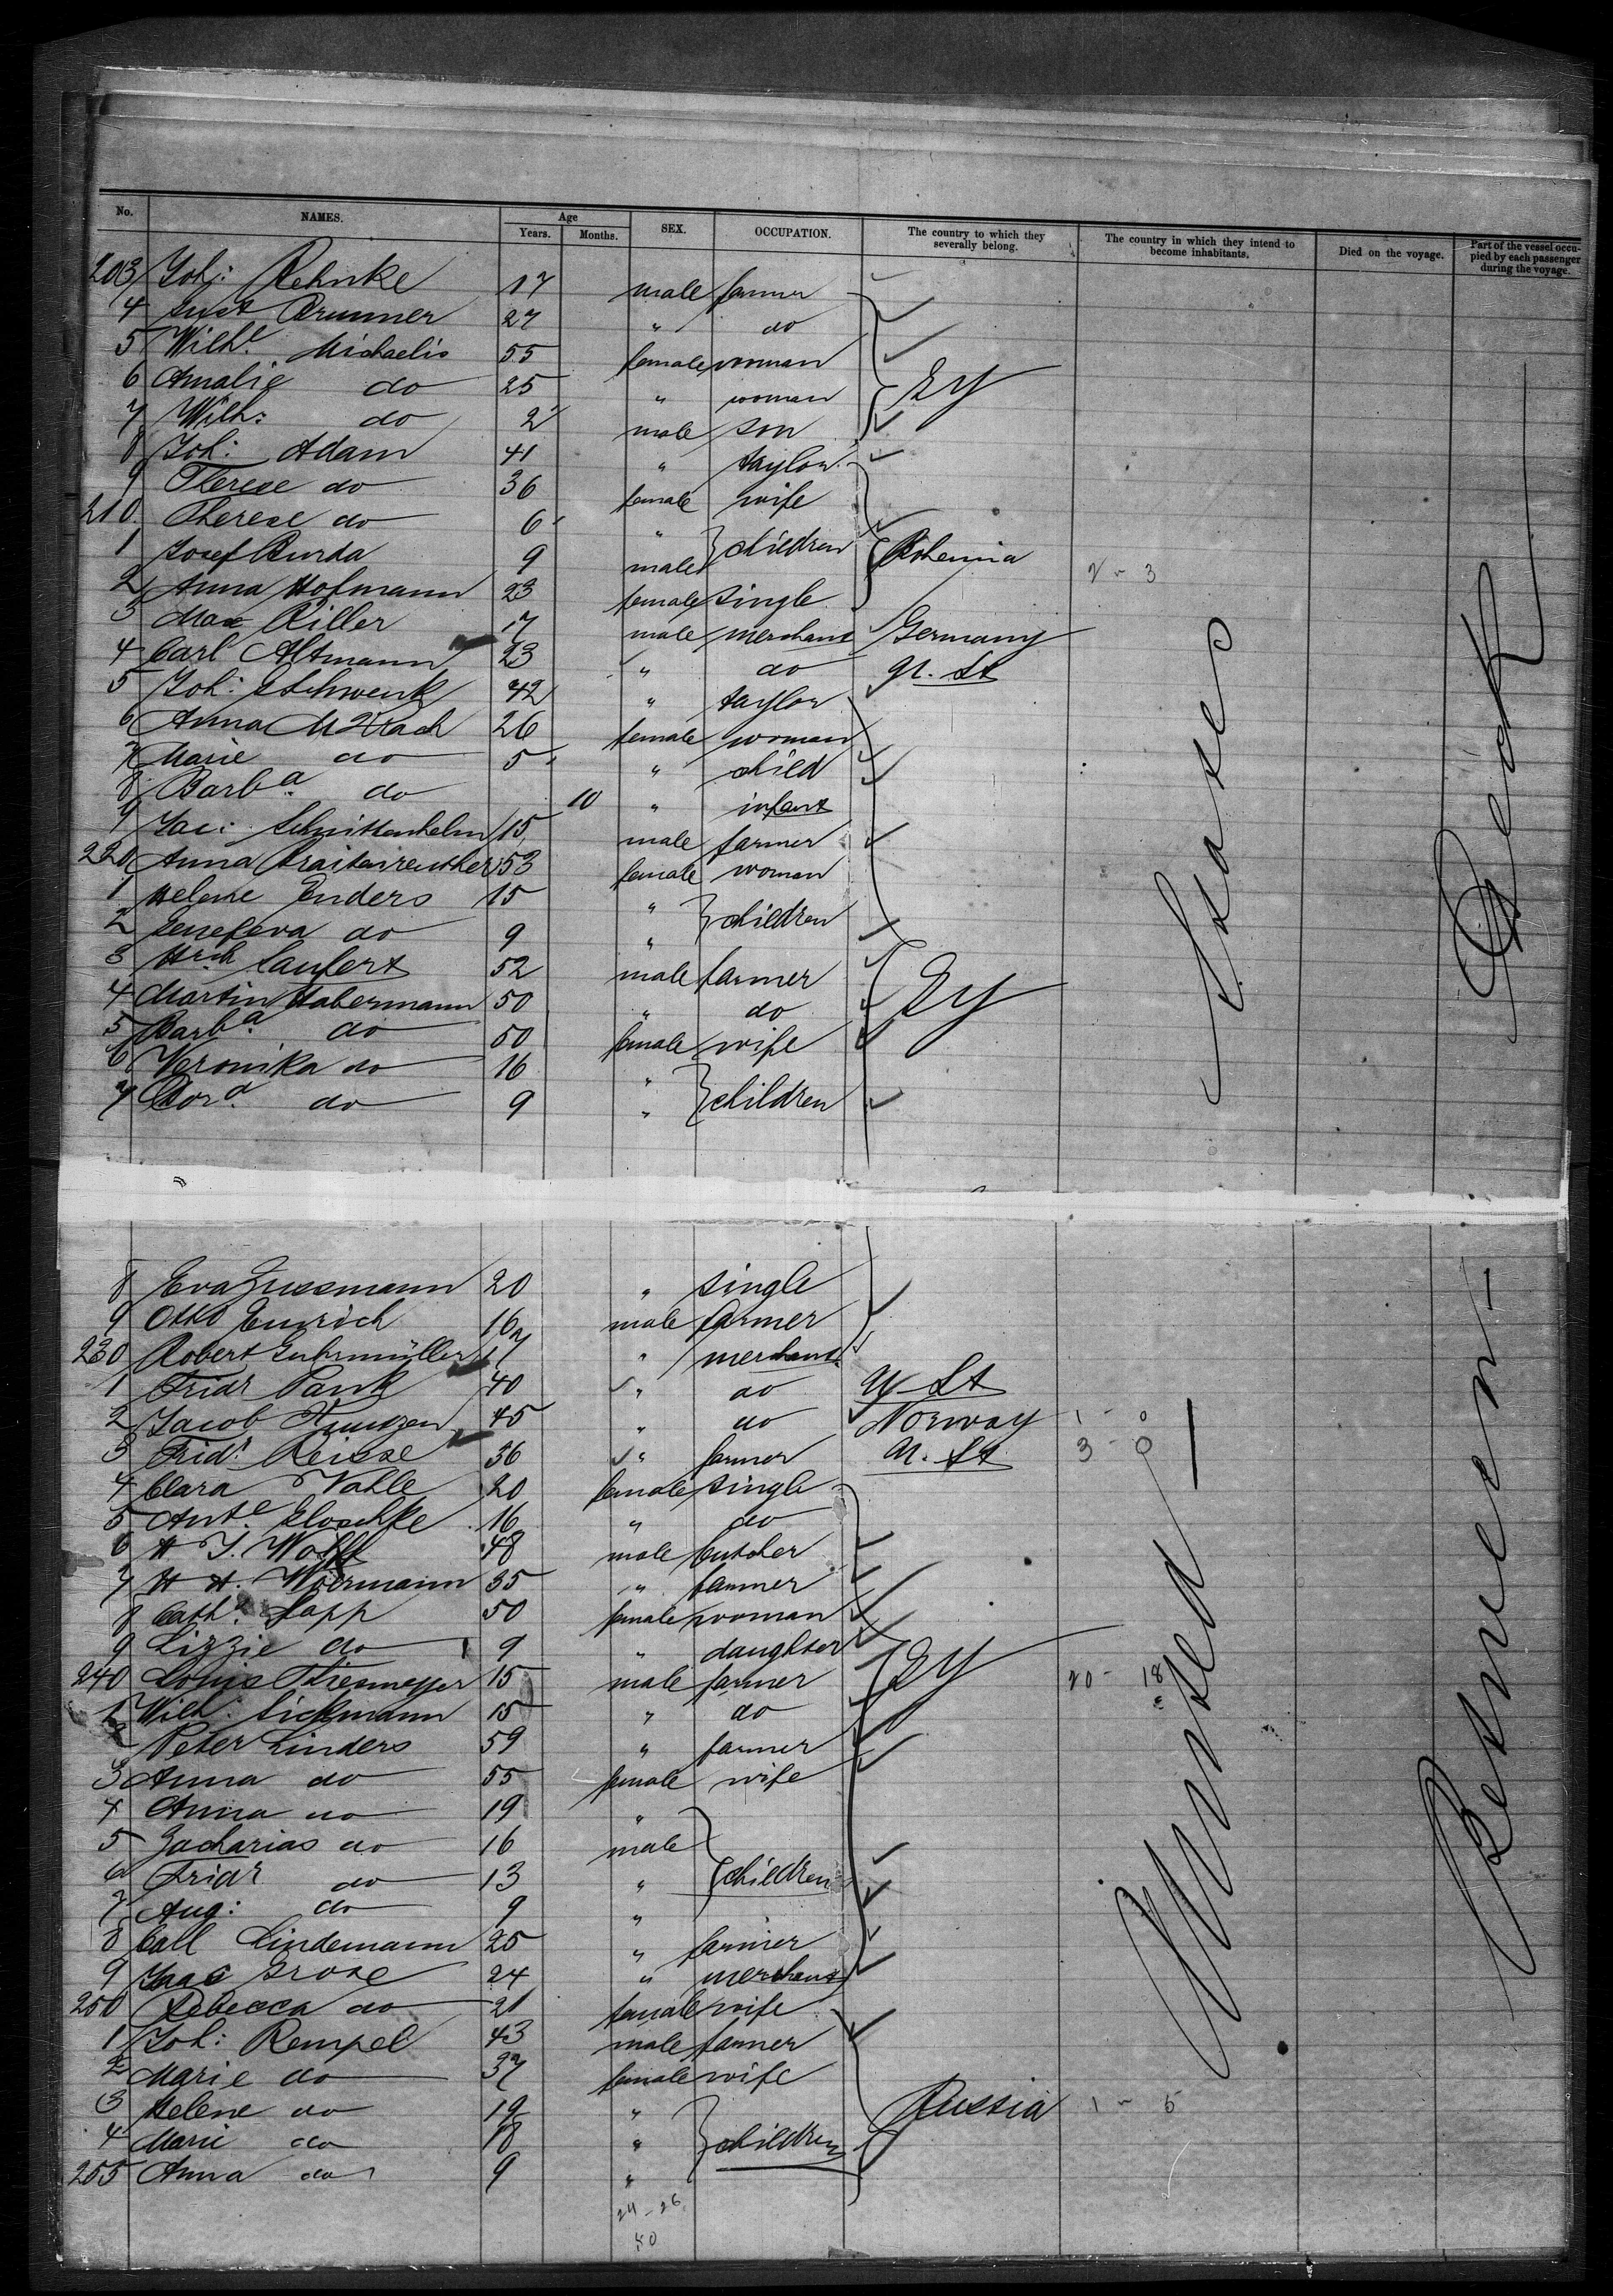 No. NAMES. Age Years. Months. SEX. OCCUPATION. The country to which they severally belong. The country in which they intend to become inhabitants. Died on the voyage. Part of the vessel occupied by each passenger during the voyage.
203 Joh: Rehnke 17 male farmer
4 Gust Brunner 27 " do
5 Wilhe. Michaelis 55 female woman
6 Amalie do 25 " woman Gy
7 Wilh: do 2 male son
8 Joh: Adam 41 " taylor
9 Therese do 36 female wife
210 Therese do 6 " children
1 Josef Burda 9 male Bohemia 2 - 3
2 Anna Hofmann 23 female single
3 Max Riller 17 male merchant Germany
4 Carl Altmann 23 " do U. St
5 Joh: Schwenk 42 " taylor
6 Anna 26 female woman
7 Marie do 5 " child
8 Barba. do 10 " infant
9 Jac: Schnittenhelm 15 male farmer
220 Anna 53 female woman
1 Helene Enders 15 " children
2 Genefeva do 9 "
3 Hrch 52 male farmer
4 Martin Habermann 50 " do Gy
5 Barba do 50 female wife
6 Veronika do 16 " children
7 Dora. do 9 "
States
Deck
8 Eva Zussmann 20 " single
9 Otto Emrich 16 male farmer
230 Robert 17 " merchant
1 Fridr Pank 40 " do U St
2 Jacob 45 " do Norway 1 - 0
3 Fridr Reisse 36 " farmer U. St 3 - 0
4 Clara Vahle 20 female single
5 Ante. 16 " do
6 H J. Wolff 48 male butcher
7 H H. Woermann 35 " farmer
8 Cath. Lapp 50 female woman
9 Lizzie do 9 " daughter
240 Louis Thiesmeyer 15 male farmer Gy 20 - 18
1 Wilh. Sickmann 15 " do
2 Peter Linders 59 " farmer
3 Anna do 55 female wife
4 Anna do 19 "
5 Zacharias do 16 male
6 Fridr do 13 " children
7 Aug: do 9 "
8 Carl Lindemann 25 " farmer
9 Isaac Grose 24 " merchant
250 Rebecca do 21 female wife
1 Joh: Rempel 43 male farmer
2 Marie do 37 female wife
3 Helene do 19 " Russia 1 - 5
4 Marie do 18 " children
255 Anna do 9 "
24 - 26
50
United
Between